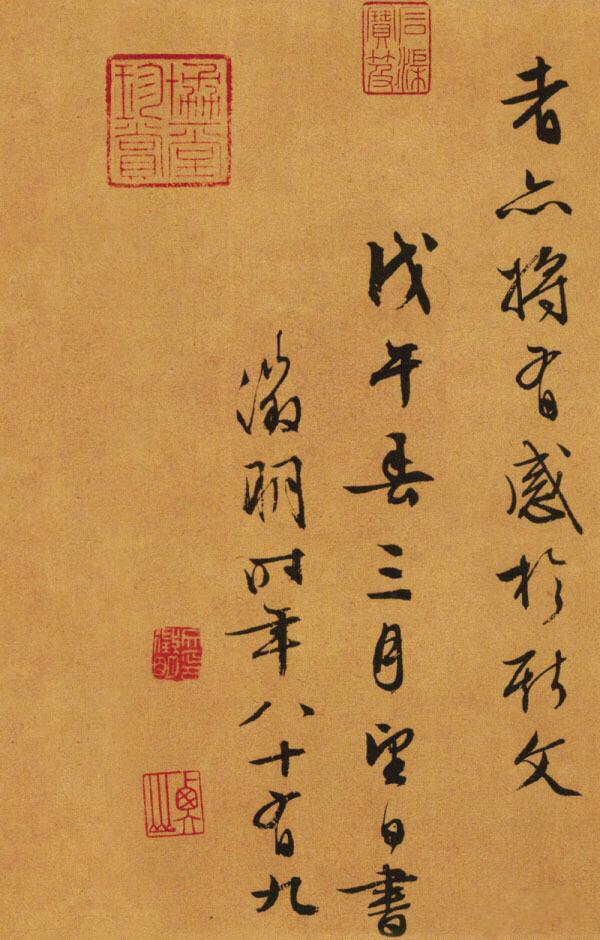 者亦将有感於斯文
戊午春三月望日書
徵明時年八十有九
協堂珍賞